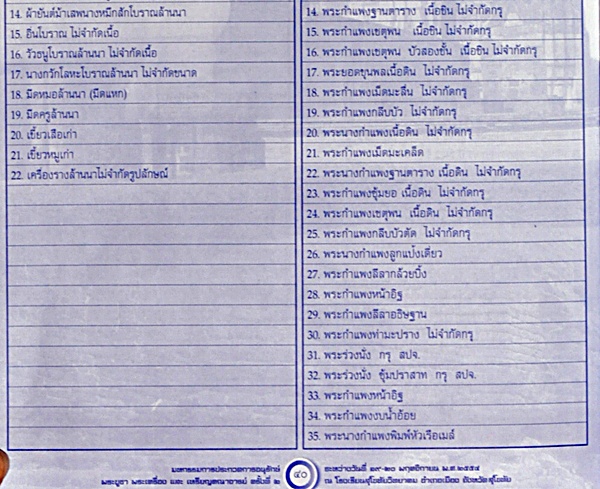 14. ผ้ายันต์ม้าเสพนางหมึกสักโบราณล้านนา
15. อิ่นโบราณ ไม่จำกัดเนื้อ
16. วัวธนูโบราณล้านนา ไม่จำกัดเนื้อ
17. นางกวักโลหะโบราณล้านนา ไม่จำกัดขนาด
18. มีดหมอล้านนา (มีดแหก)
19. มีดครูล้านนา
20. เขี้ยวเสือเก่า
21. เขี้ยวหมูเก่า
22. เครื่องรางล้านนาไม่จำกัดรูปลักษณ์
14. พระกำแพงฐานตาราง เนื้อชิน ไม่จำกัดกรุ
15. พระกำแพงเชตุพน เนื้อชิน ไม่จำกัดกรุ
16. พระกำแพงเชตุพน บัวสองชั้น เนื้อชิน ไม่จำกัดกรุ
17. พระยอดขุนพลเนื้อดิน ไม่จำกัดกรุ
18. พระกำแพงเม็ดมะลื่น ไม่จำกัดกรุ
19. พระกำแพงกลีบบัว ไม่จำกัดกรุ
20. พระนางกำแพงเนื้อดิน ไม่จำกัดกรุ
21. พระกำแพงเม็ดมะเคล็ด
22. พระนางกำแพงฐานตาราง เนื้อดิน ไม่จำกัดกรุ
23. พระกำแพงซุ้มยอ เนื้อดิน ไม่จำกัดกรุ
24. พระกำแพงเชตุพน เนื้อดิน ไม่จำกัดกรุ
25. พระกำแพงกลีบบัวตัด ไม่จำกัดกรุ
26. พระนางกำแพงลูกแป้งเดี่ยว
27. พระกำแพงลีลากล้วยปิ้ง
28. พระกำแพงหน้าอิฐ
29. พระกำแพงลีลาอธิษฐาน
30. พระกำแพงท่ามะปราง ไม่จำกัดกรุ
31. พระร่วงนั่ง กรุ สปจ.
32. พระร่วงนั่ง ซุ้มปราสาท กรุ สปจ.
33. พระกำแพงหน้าอิฐ
34. พระกำแพงงบน้ำอ้อย
35. พระนางกำแพงพิมพ์หัวเรือเมล์
มหกรรมการประกวดการอนุรักษ์
พระบูชา พระเครื่อง และ เหรียญคณาจารย์ ครั้งที่ ๒
๔๐
ระหว่างวันที่ ๑๙-๒๐ พฤศจิกายน พ.ศ.๒๕๕๔
ณ โรงเรียนสุโขทัยวิทยาคม อำเภอเมือง จังหวัดสุโขทัย